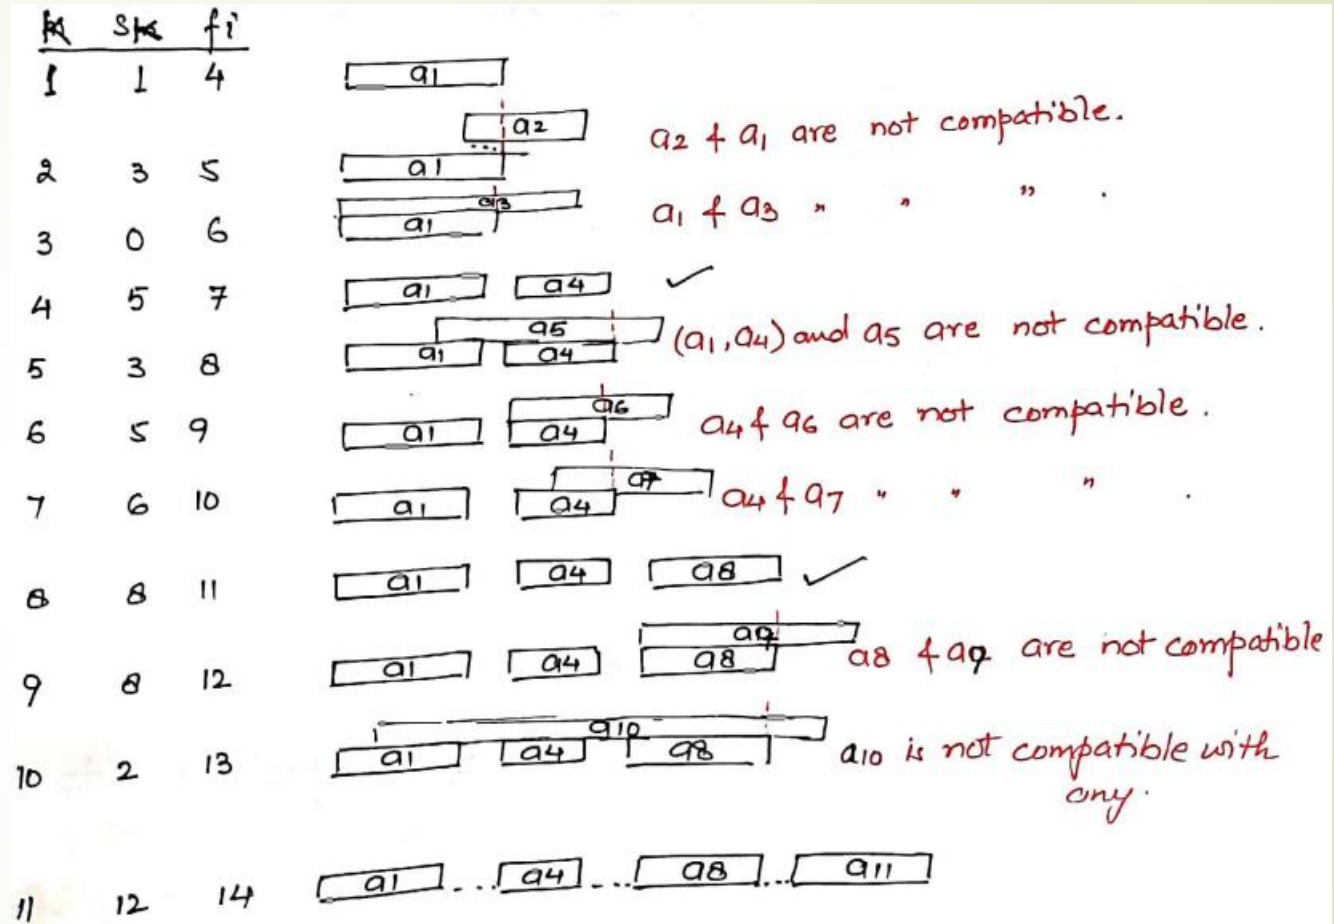 k sk fi
1 1 4 a1
a2 a2 & a1 are not compatible.
2 3 5 a1
a3 a1 & a3 " " " .
3 0 6 a1
4 5 7 a1 a4 ✓
a5 (a1, a4) and a5 are not compatible.
5 3 8 a1 a4
a6 a4 & a6 are not compatible.
6 5 9 a1 a4
a7 a4 & a7 " " " .
7 6 10 a1 a4
8 8 11 a1 a4 a8 ✓
a9 a8 & a9 are not compatible
9 8 12 a1 a4 a8
a10 a10 is not compatible with
10 2 13 a1 a4 a8 any.
11 12 14 a1 ... a4 ... a8 ... a11